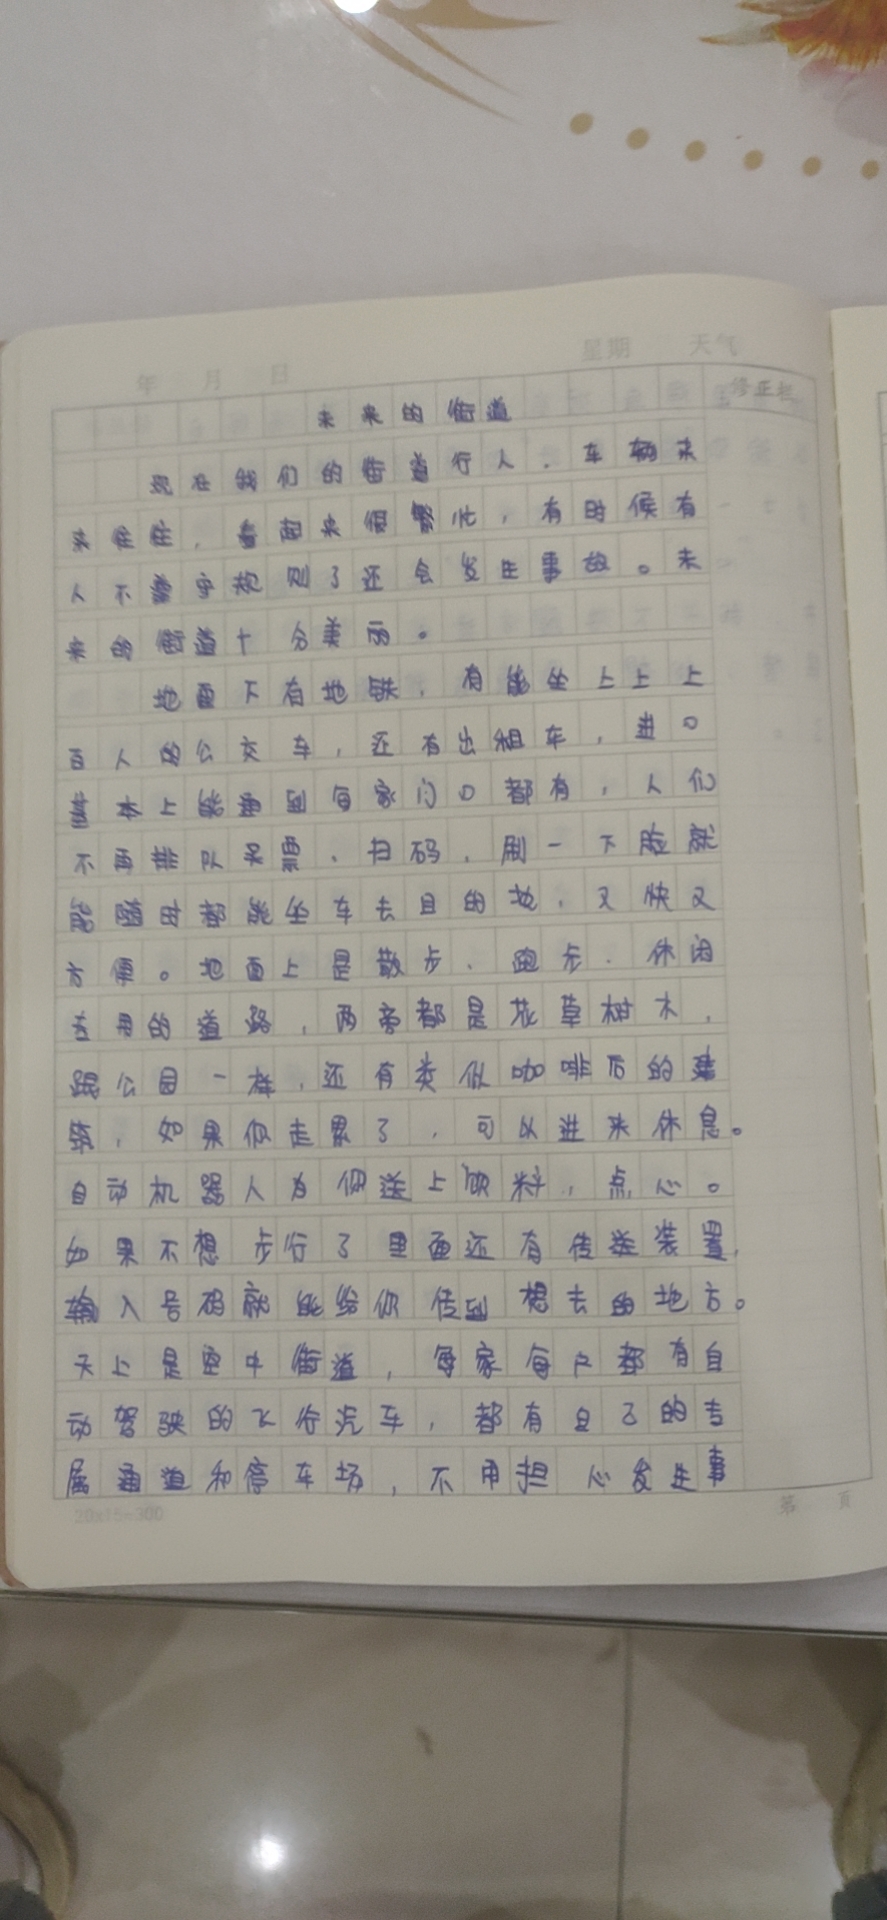 年 月 日 星期 天气
修正栏
未来的街道
现在我们的街道行人、车辆来
来往往，看起来很繁忙，有时候有
人不遵守规则了还会发生事故。未
来的街道十分美丽。
地面下有地铁，有能坐上上上
百人的公交车，还有出租车，进口
基本上能通到每家门口都有，人们
不再排队买票、扫码，刷一下脸就
能随时都能坐车去目的地，又快又
方便。地面上是散步、跑步、休闲
专用的道路，两旁都是花草树木，
跟公园一样，还有类似咖啡后的建
筑，如果你走累了，可以进来休息。
自动机器人为你送上饮料，点心。
如果不想步行了里面还有传送装置，
输入号码就能给你传到想去的地方。
天上是空中街道，每家每户都有自
动驾驶的飞行汽车，都有自己的专
属通道和停车场，不用担心发生事
20x15=300
第 页